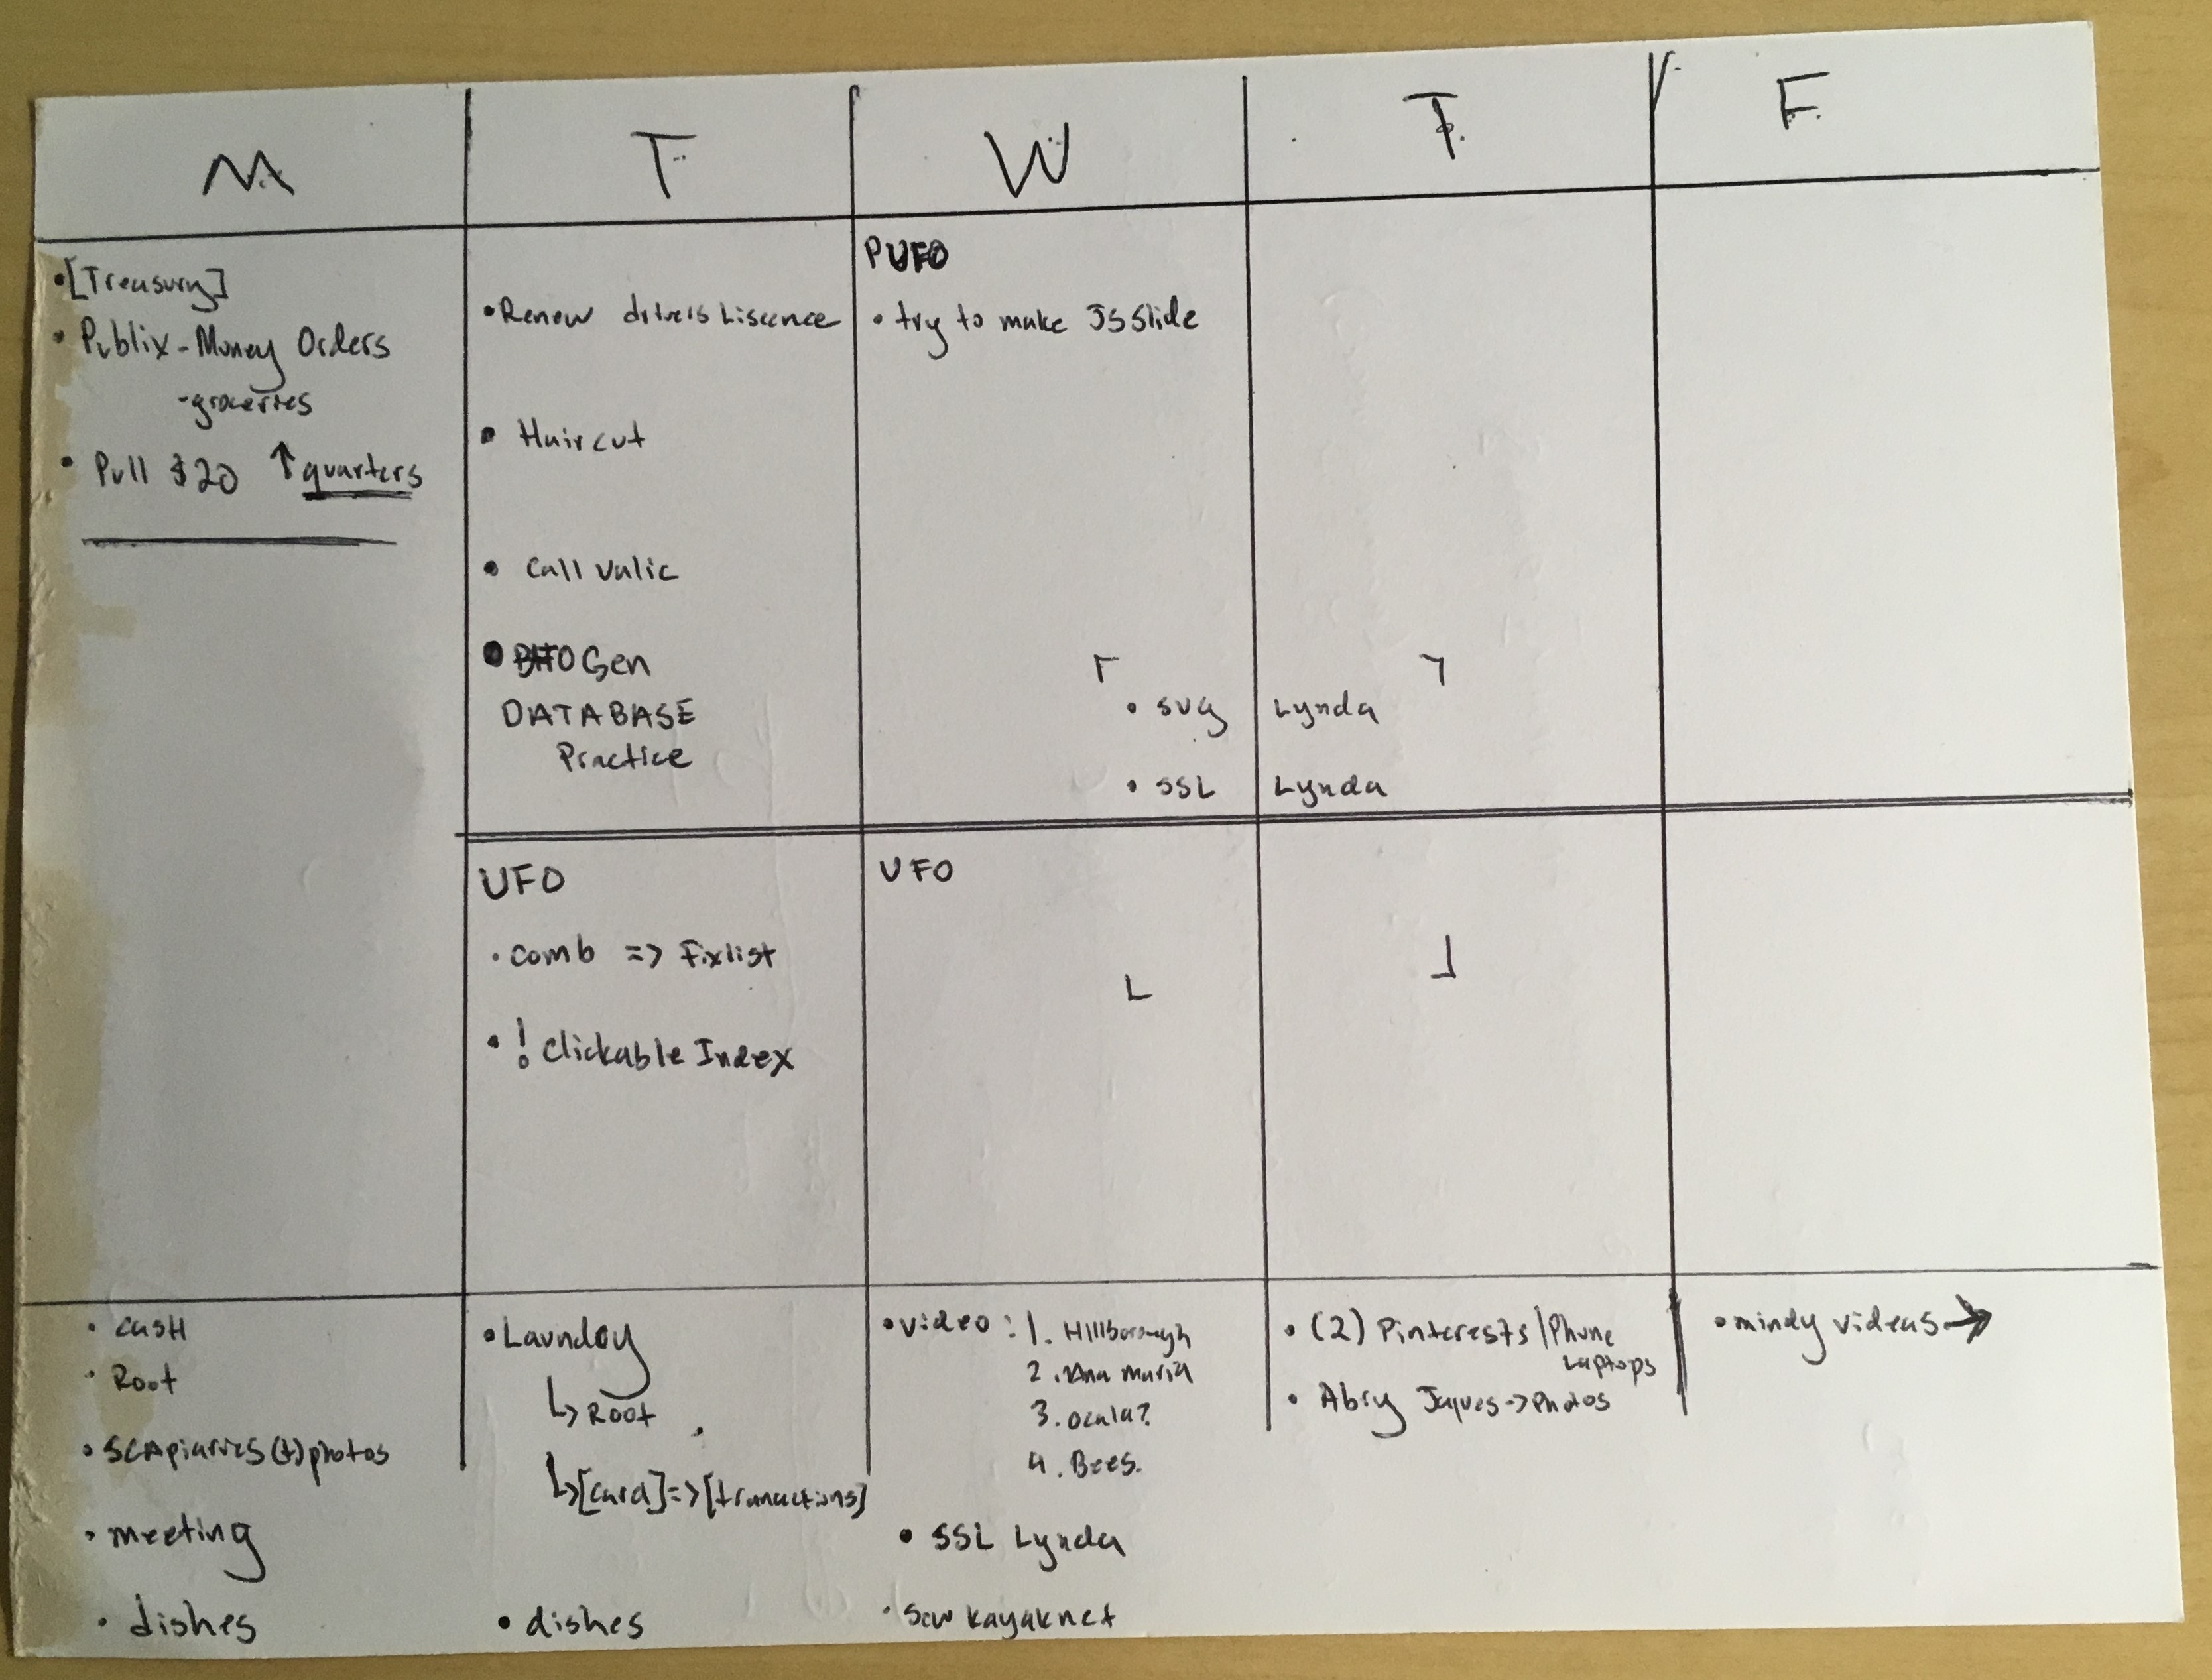 M
T
W
T
F
• [Treasury]
• Publix - Money Orders
- groceries
• Pull $20 ↑ quarters
• Renew drivers Liscence
• Haircut
• Call Valic
• Gen
DATABASE
Practice
PUFO
• try to make JS Slide
• svg Lynda
• SSL Lynda
UFO
• comb => Fixlist
• ! Clickable Index
UFO
• cash
• Root
• SCApiaries (+) photos
• meeting
• dishes
• Laundry
↳ Root
↳ [card] => [tranactions]
• dishes
• video : 1. Hillborough
2. Ana maria
3. ocala?
4. Bees.
• SSL Lynda
• Sew kayak net
• (2) Pinterests / Phone
Laptops
• Jaques -> Photos
• mindy videos →